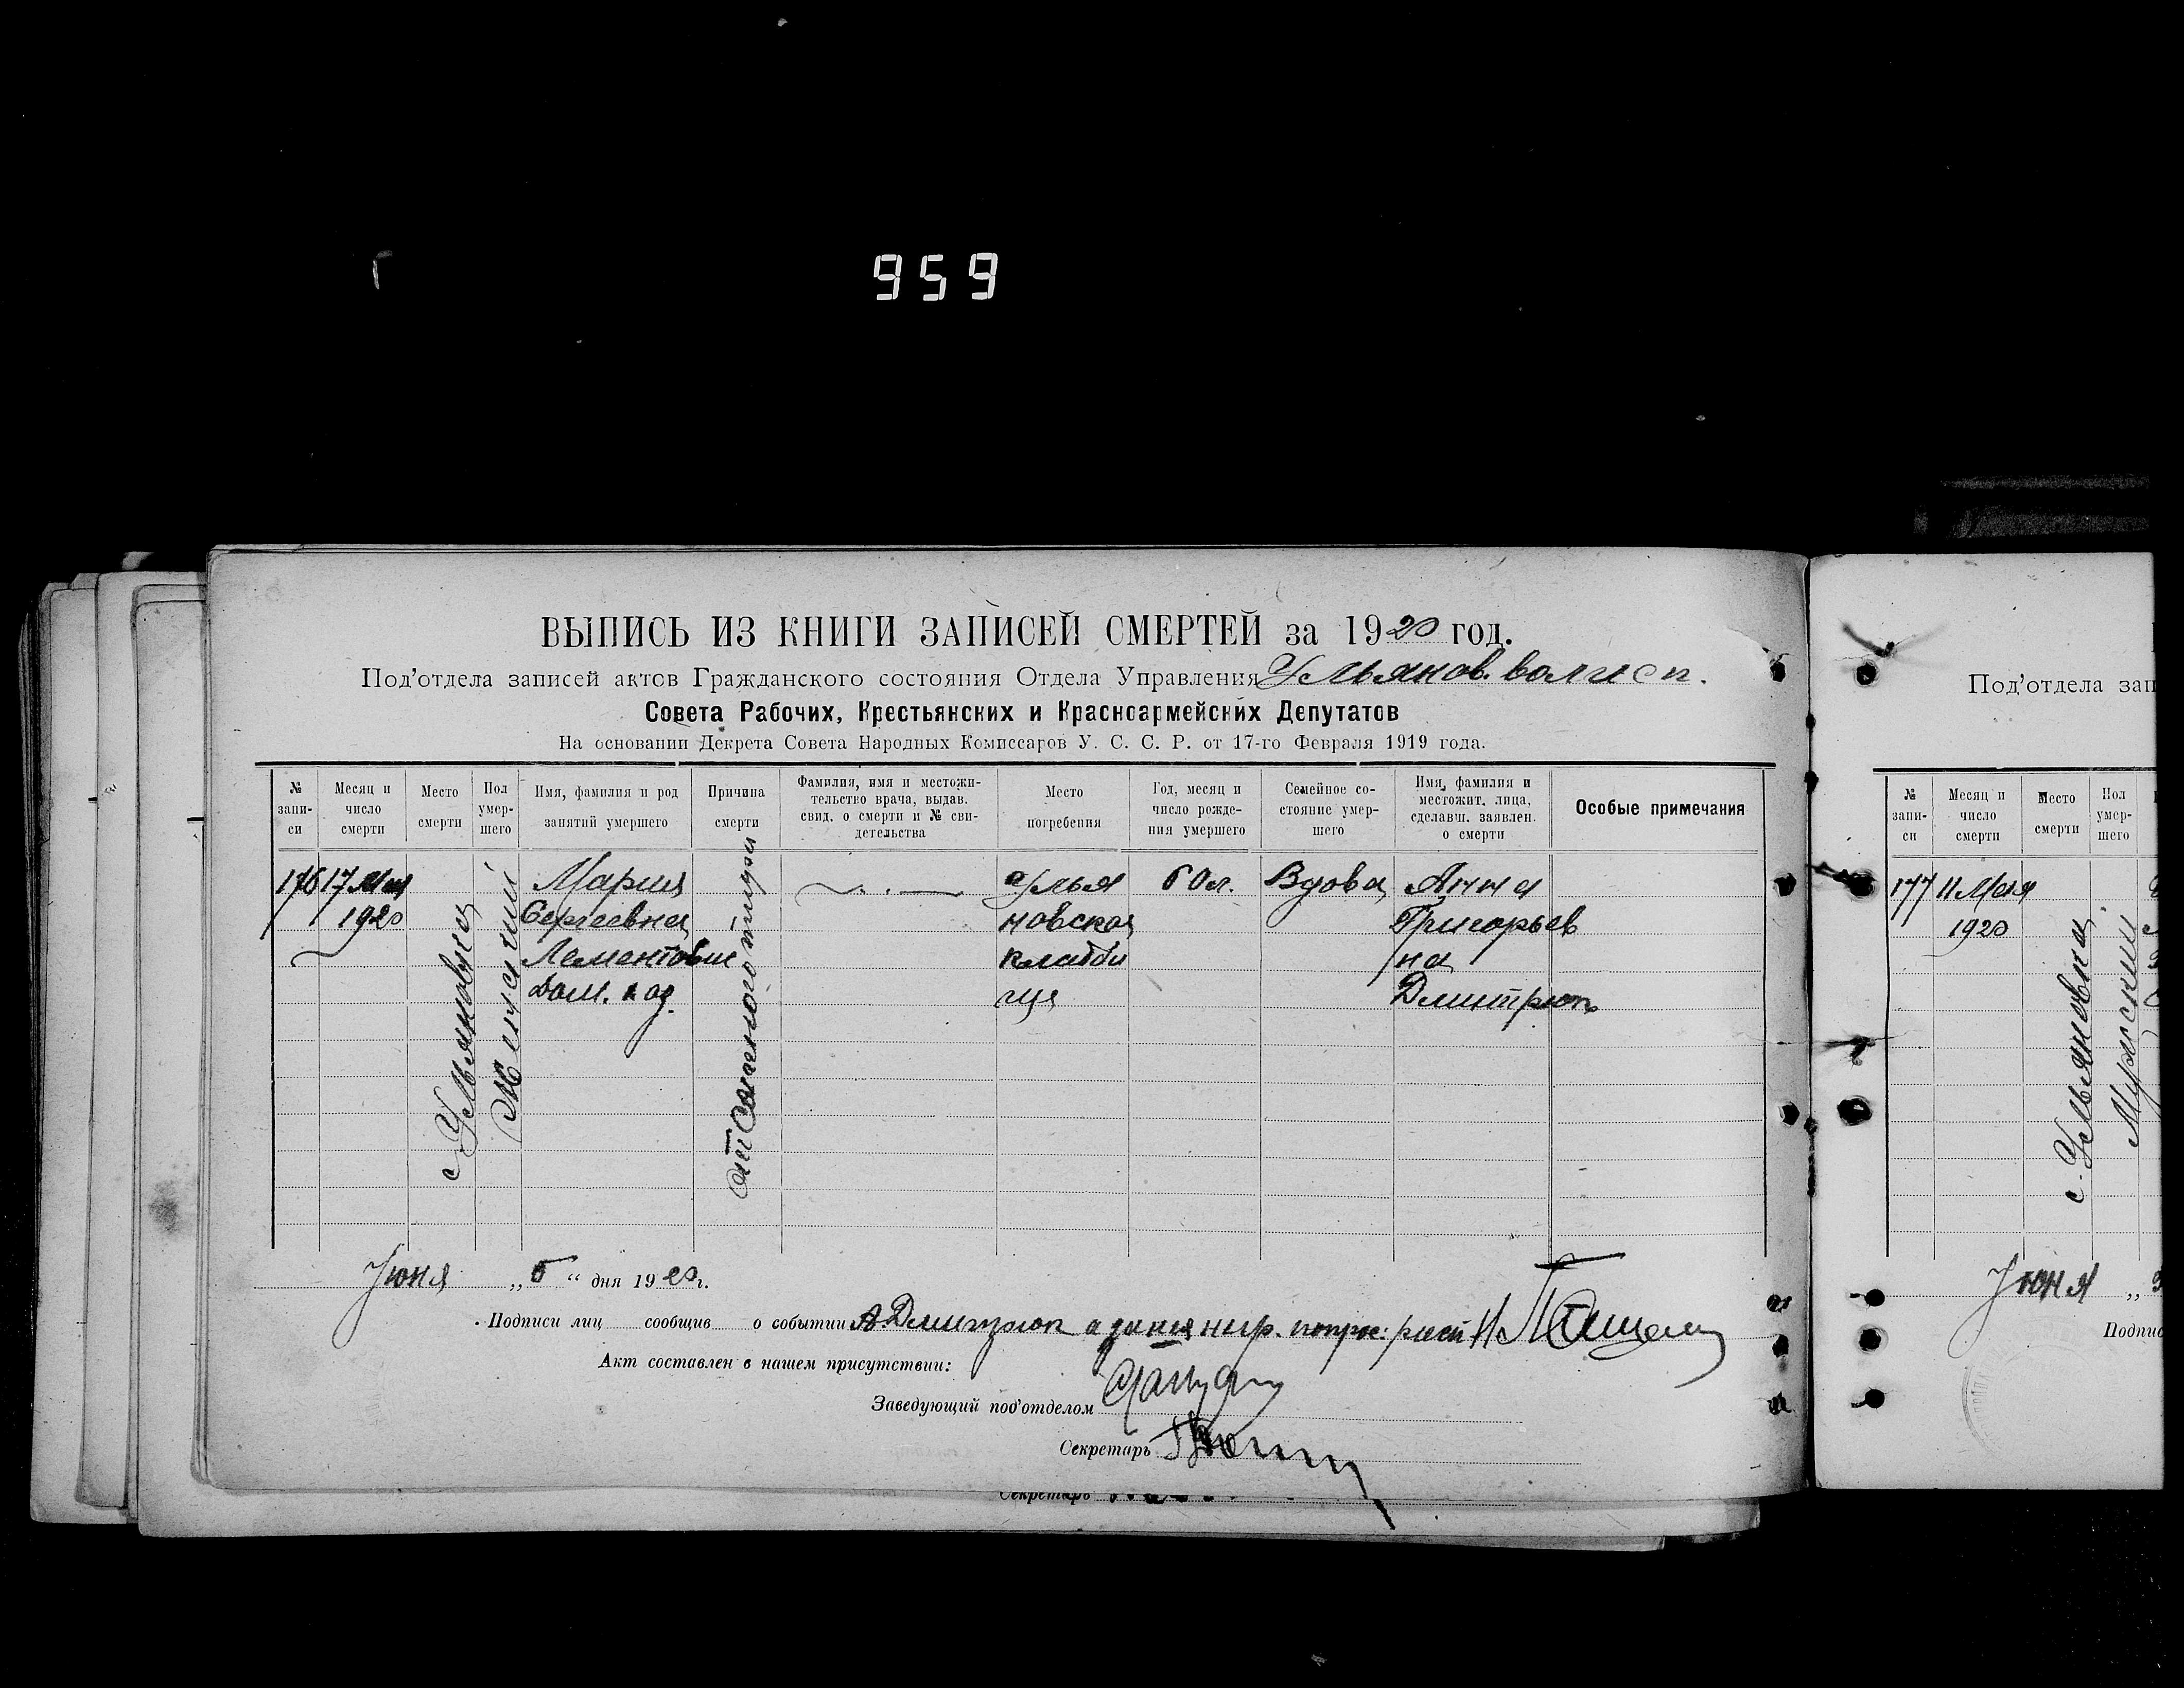 959
ВЫПИСЬ ИЗ КНИГИ ЗАПИСЕЙ СМЕРТЕЙ за 1920 год.
Под'отдела записей актов Гражданского состояния Отдела Управления Ульянов. волисп.
Совета Рабочих, Крестьянских и Красноармейских Депутатов
На основании Декрета Совета Народных Комиссаров У. С. С. Р. от 17-го Февраля 1919 года.
№ запи-
си
Месяц и
число
смерти
Место
смерти
Пол
умер-
шего
Имя, фамилия и род
занятий умершего
Причина
смерти
Фамилия, имя и местожи-
тельство врача, выдав.
свид. о смерти и № сви-
детельства
Место
погребения
Год, месяц и
число рожде-
ния умершего
Семейное со-
стояние умер-
шего
Имя, фамилия и
местожит. лица,
сделавш. заявлен.
о смерти
Особые примечания
176
17 Мая
1920
с Ульяновка
Женский
Мария
Сергеевна
Лементовш
Дом.
от тифа
Улья
новская
кладби
ща
60 л.
Вдова
Анна
Григорьев
на
Дмитрюк
Июня „5“ дня 1920 г.
Подписи лиц сообщив о событии А. Дмитрюк а за нея негр.
Акт составлен в нашем присутствии:
Заведующий под'отделом
Секретарь
Секретарь
Под'отдела зап
№
запи-
си
Месяц и
число
смерти
Место
смерти
Пол
умер-
шего
177
11 Мая
1920
с. Ульяновка
Мужский
Июня „
Подпис